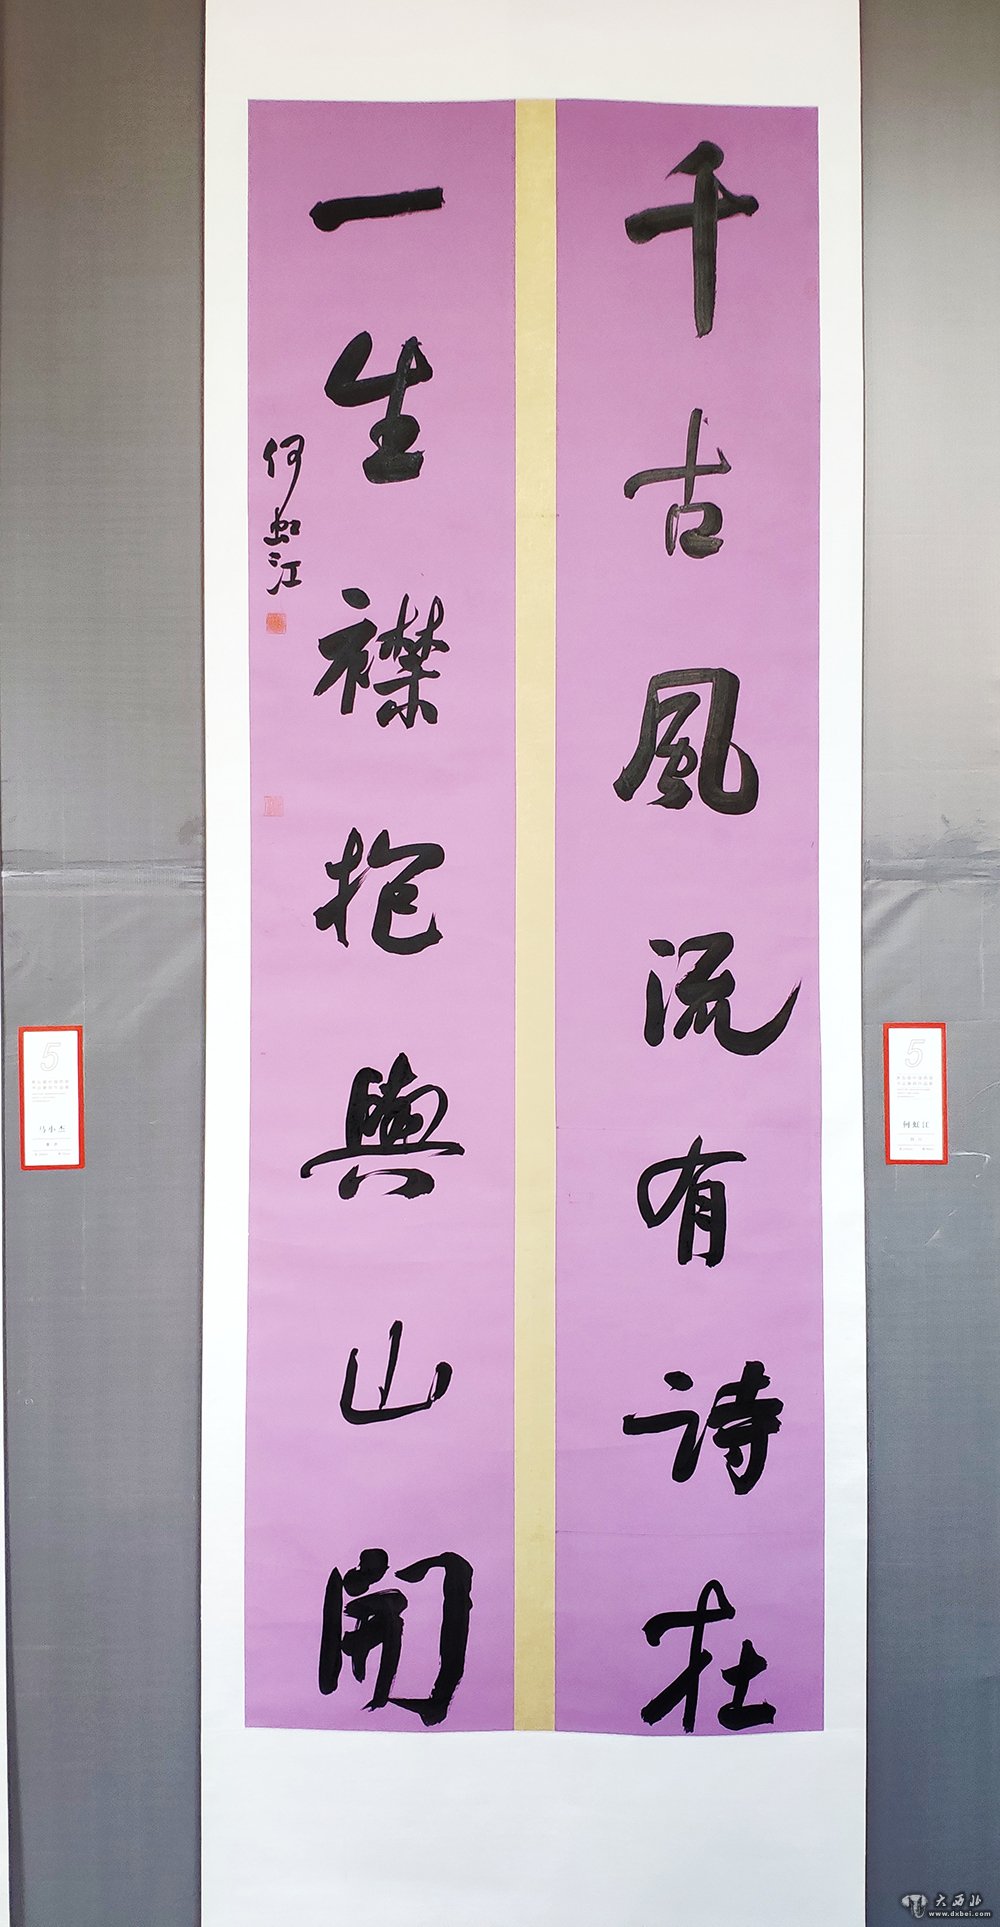 千古風流有詩在
一生襟抱與山開
何虹江
5
何虹江
5
马小杰
大西北
www.dxbei.com